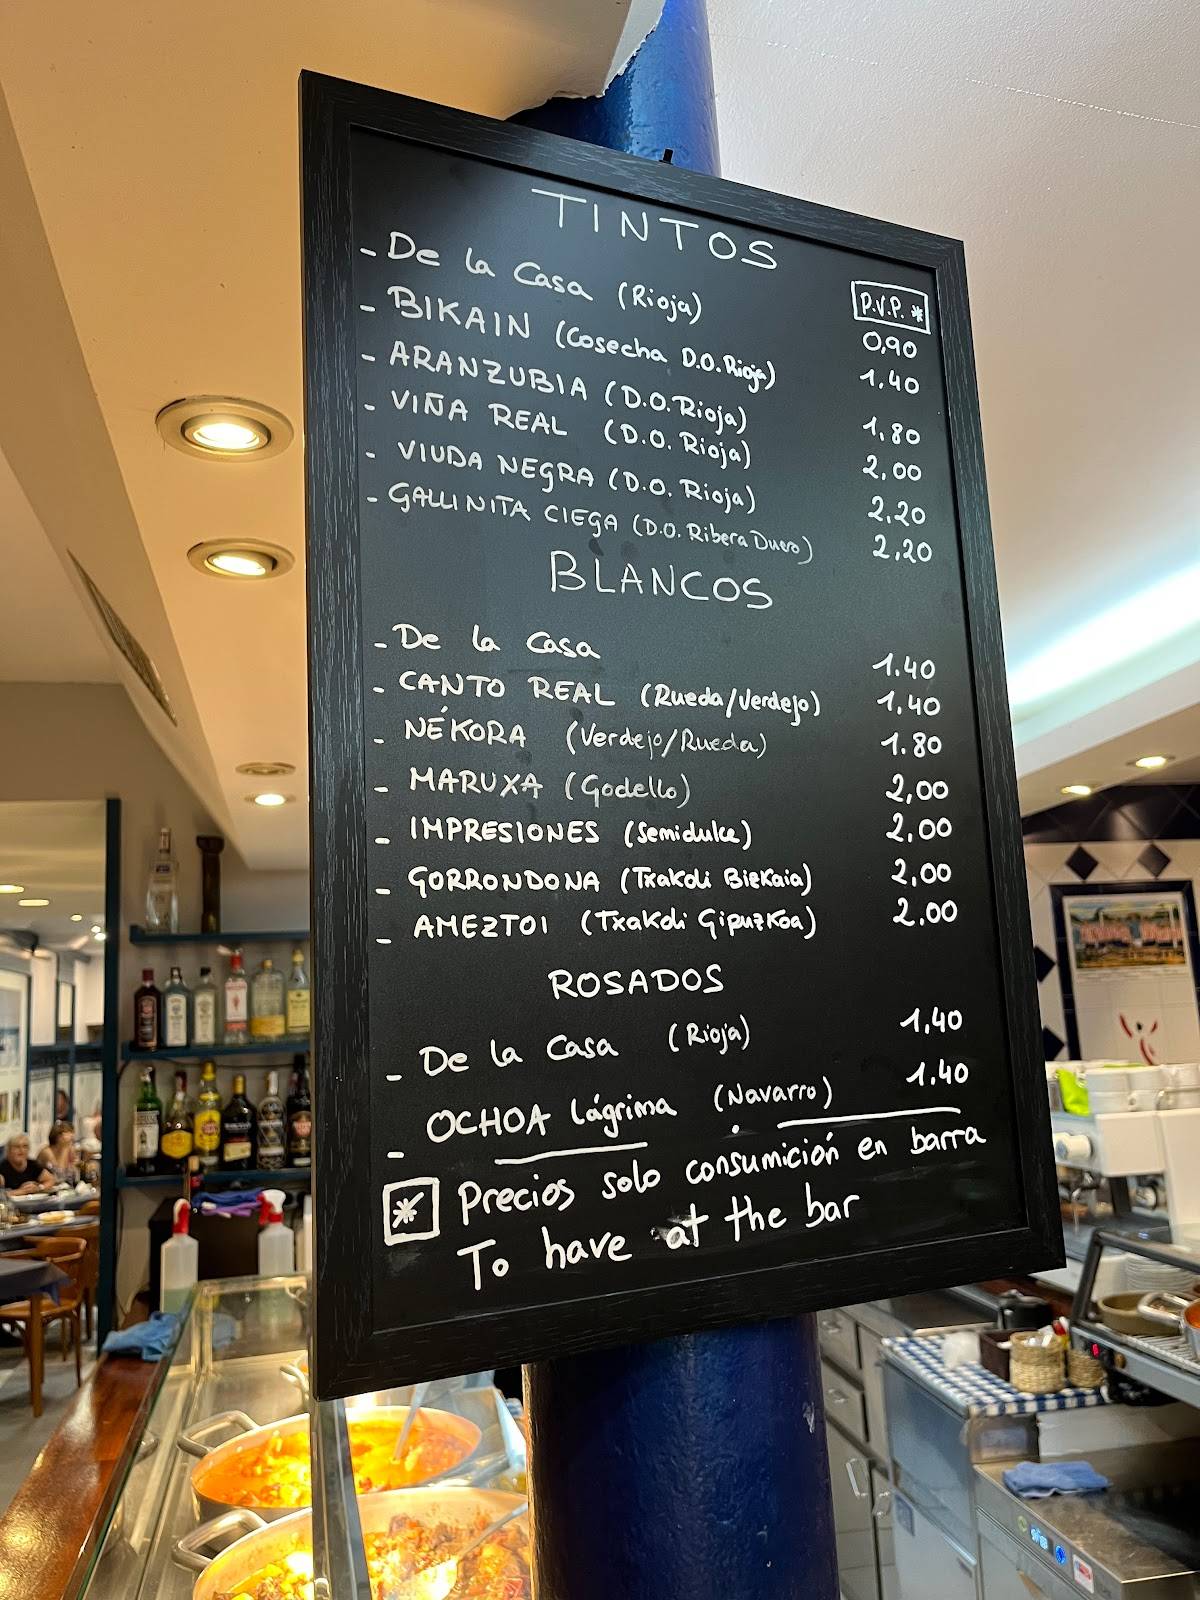 TINTOS
P.V.P. *
- De la Casa (Rioja) 0,90
- BIKAIN (Cosecha D.O. Rioja) 1.40
- ARANZUBIA (D.O. Rioja) 1.80
- VIÑA REAL (D.O. Rioja) 2,00
- VIUDA NEGRA (D.O. Rioja) 2,20
- GALLINITA CIEGA (D.O. Ribera Duero) 2,20
BLANCOS
- De la Casa 1.40
- CANTO REAL (Rueda/Verdejo) 1,40
- NÉKORA (Verdejo/Rueda) 1.80
- MARUXA (Godello) 2,00
- IMPRESIONES (Semidulce) 2,00
- GORRONDONA (Txakoli Bizkaia) 2,00
- AMEZTOI (Txakoli Gipuzkoa) 2.00
ROSADOS
- De la Casa (Rioja) 1,40
- OCHOA lágrima (Navarro) 1.40
* Precios solo consumición en barra
To have at the bar